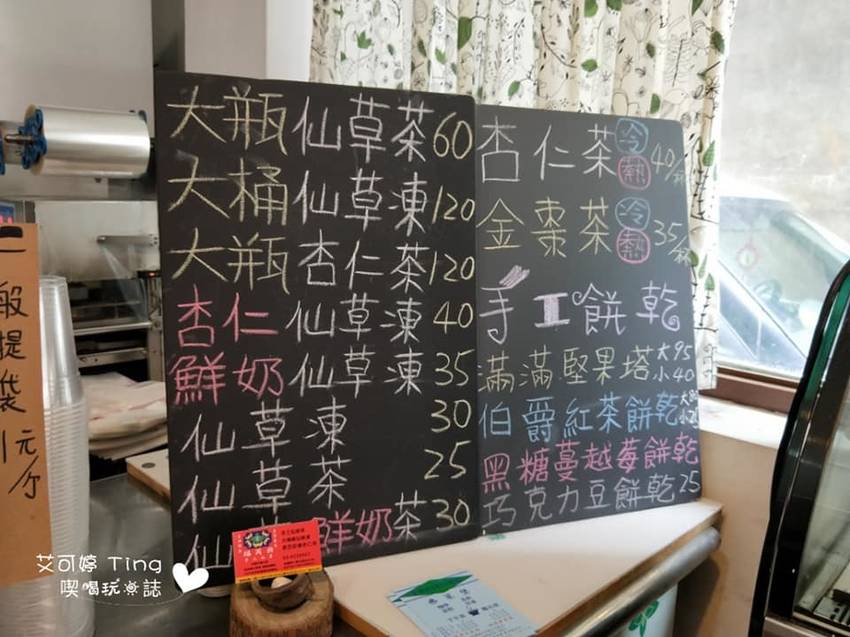 大瓶仙草茶60
大桶仙草凍120
大瓶杏仁茶120
杏仁仙草凍40
鮮奶仙草凍35
仙草凍30
仙草茶25
仙 鮮奶茶30
杏仁茶冷熱40/杯
金棗茶冷熱35/杯
手工餅乾
滿滿堅果塔大95
小40
伯爵紅茶餅乾大
小
黑糖蔓越莓餅乾
巧克力豆餅乾25
一般提袋1元/个
艾可婷 Ting
喫喝玩樂誌